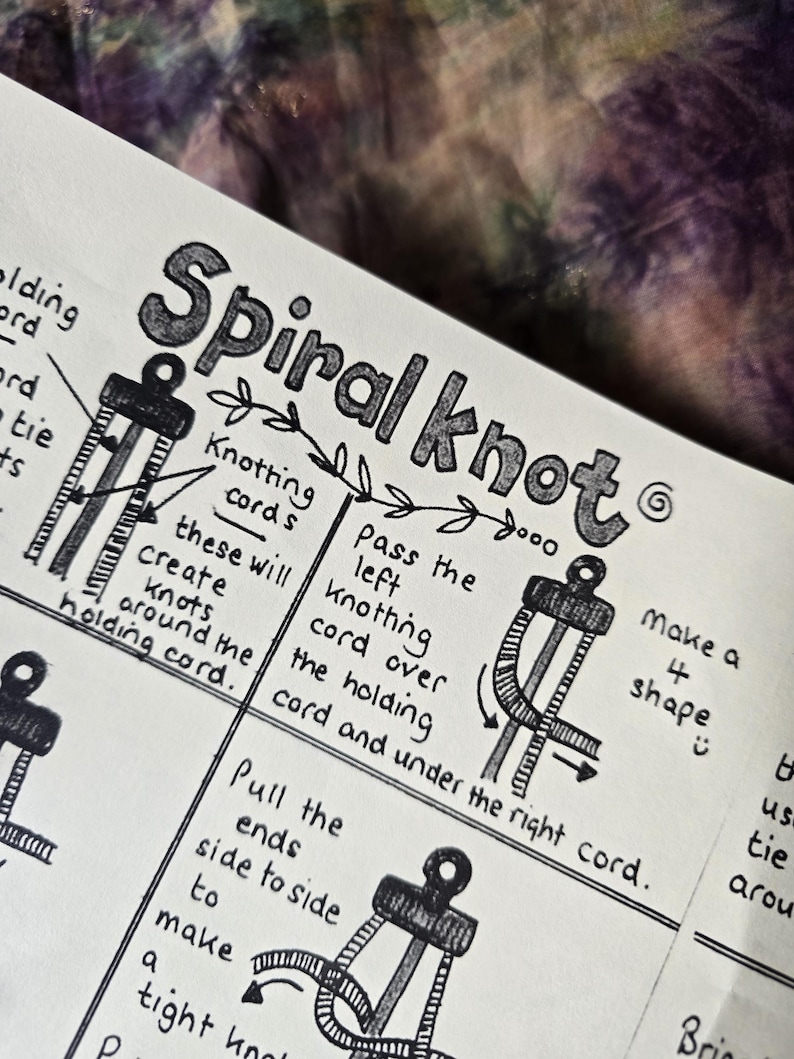 Spiral knot
olding
ord
ord
tie
ts
Knotting
cords
these will
create
knots
around the
holding cord.
Pass the
left
knotting
cord over
the holding
cord and under the right cord.
Make a
4
shape
Pull the
ends
side to side
to
make
a
tight kno
us
tie
arou
Brin